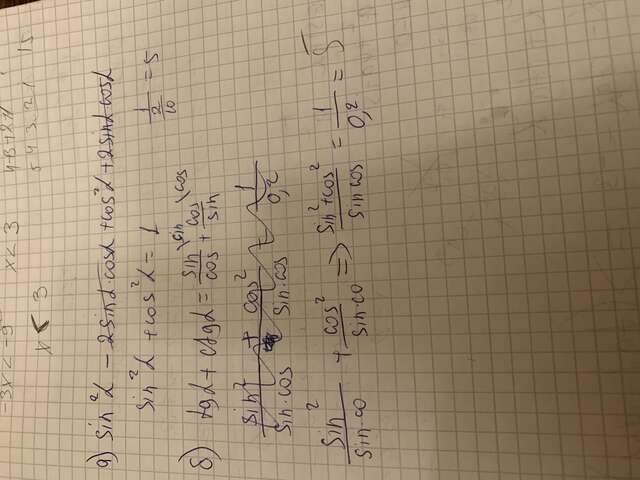 -3x < -9 x < 3
x < 3 5 4 3 2 1 15
а) sin²α - 2sinα·cosα + cos²α + 2sinα cosα
sin²α + cos²α = 1 1/(2/10) = 5
б) tgα + ctgα = sin/cos \sin + cos/sin \cos
sin²/sin·cos + cos²/sin·cos = 1/0,2
sin²/sin·co + cos²/sin·co => sin²+cos²/sin cos = 1/0,2 = 5